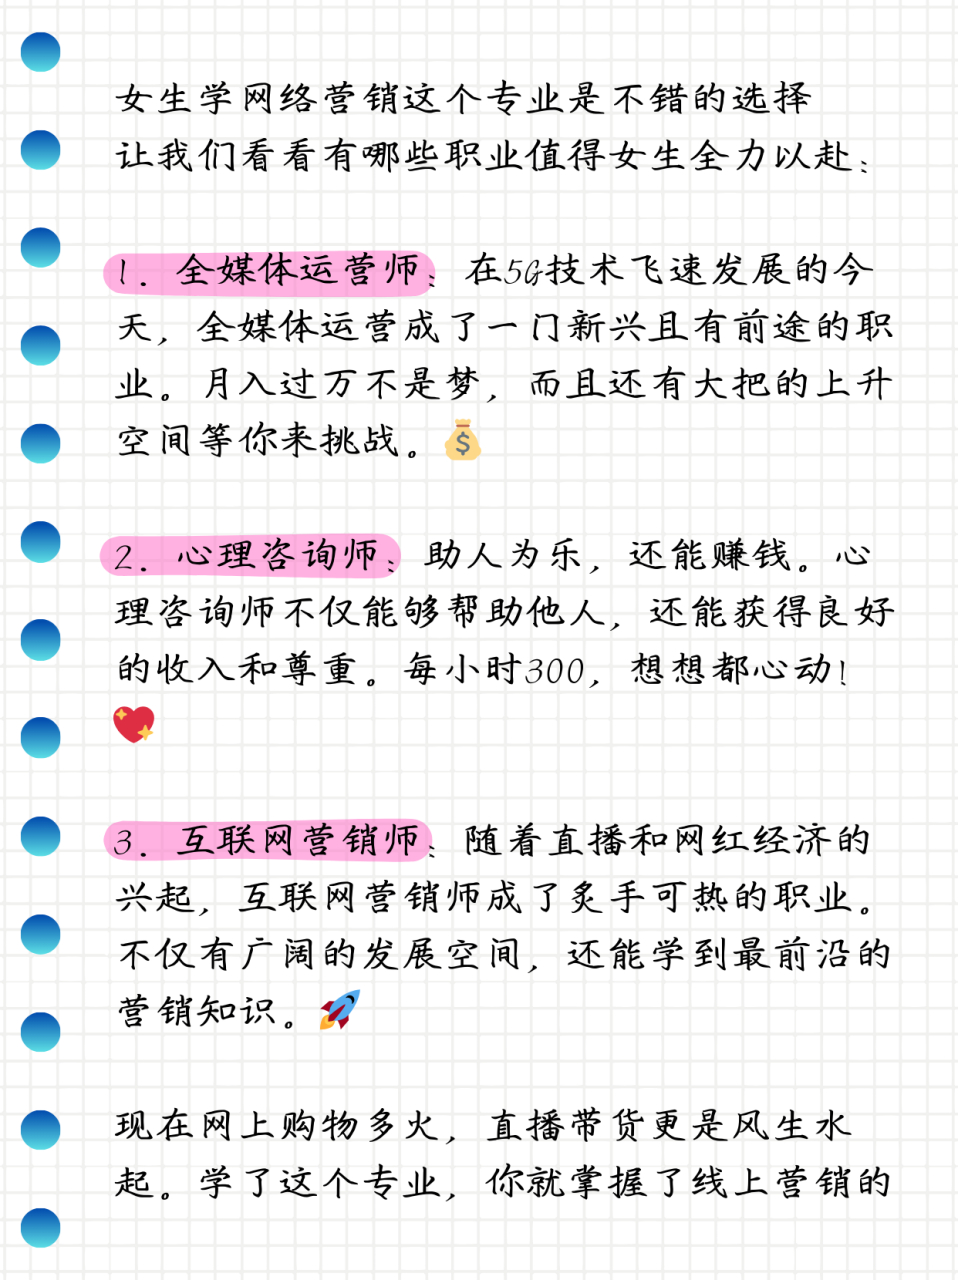 女生学网络营销这个专业是不错的选择
让我们看看有哪些职业值得女生全力以赴：
1. 全媒体运营师：在5G技术飞速发展的今
天，全媒体运营成了一门新兴且有前途的职
业。月入过万不是梦，而且还有大把的上升
空间等你来挑战。💰
2. 心理咨询师：助人为乐，还能赚钱。心
理咨询师不仅能够帮助他人，还能获得良好
的收入和尊重。每小时300，想想都心动！
💖
3. 互联网营销师：随着直播和网红经济的
兴起，互联网营销师成了炙手可热的职业。
不仅有广阔的发展空间，还能学到最前沿的
营销知识。🚀
现在网上购物多火，直播带货更是风生水
起。学了这个专业，你就掌握了线上营销的